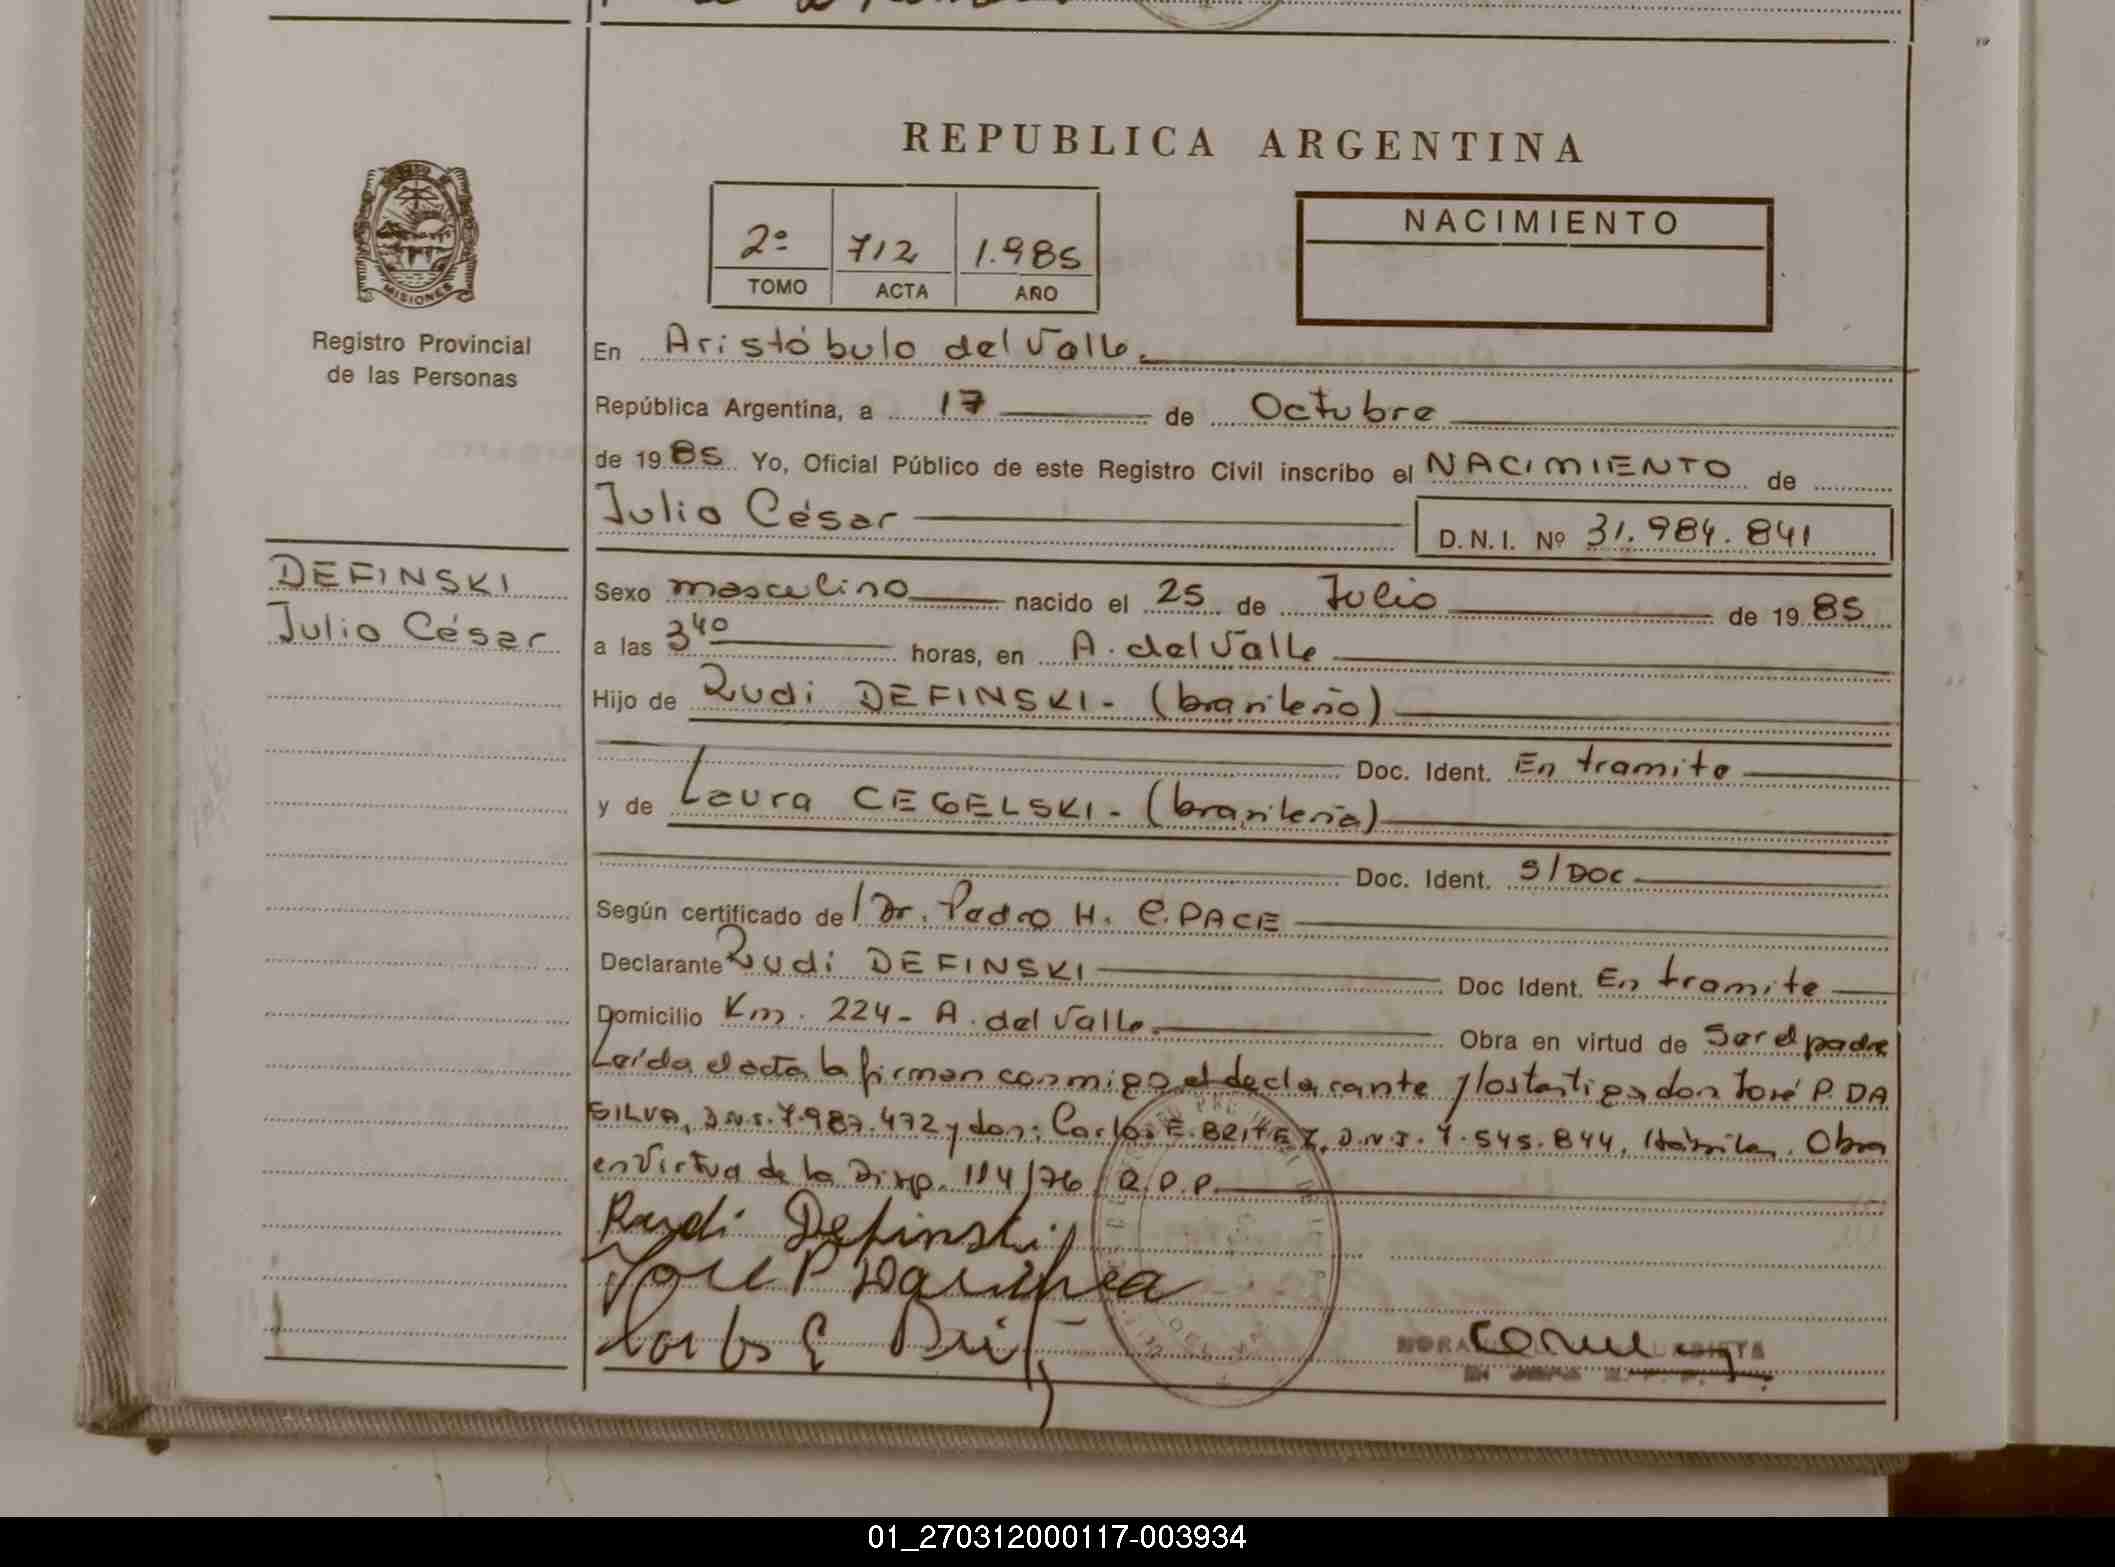 REPUBLICA ARGENTINA
2º 712 1.985
TOMO ACTA AÑO
NACIMIENTO
MISIONES
Registro Provincial
de las Personas
En Aristóbulo del Valle.
República Argentina, a 17 de Octubre
de 1985 Yo, Oficial Público de este Registro Civil inscribo el NACIMIENTO de
Julio César
D.N.I. Nº 31.984.841
DEFINSKI
Julio César
Sexo masculino nacido el 25 de Julio de 1985
a las 3 40 horas, en A. del Valle
Hijo de Rudi DEFINSKI - (brasileño)
Doc. Ident. En tramite
y de Laura CEGELSKI - (brasileña)
Doc. Ident. S/DOC
Según certificado de Dr. Pedro H. C. PACE
Declarante Rudi DEFINSKI Doc Ident. En tramite
Domicilio Km. 224 - A. del Valle. Obra en virtud de Ser el padre
Leída el acta la firman conmigo el declarante y los testigos don José P. DA
SILVA, D.N.I. 7.987.472 y don: Carlos E. BRITEZ, D.N.I. 7.545.844, Hábiles. Obra
en Virtud de la Disp. 114/76 R.P.P.
Rudi Definski
Jose P Da Silva
Carlos E Brit
NORA
01_270312000117-003934